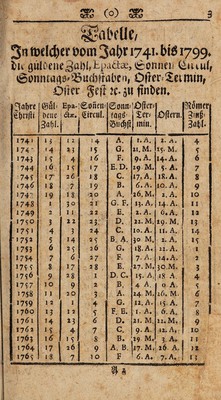 (o)
3
Tabelle,
In welcher vom Jahr 1741. bis 1799.
die güldene Zahl, Epactæ, Sonnen Circul,
Sonntags-Buchstaben, Oster-Termin,
Oster Fest ꝛc. zu finden.
Jahre Gül- Epa- Sonen Sonn- Oster- Ostern. Römer
Christi dene ctæ. Circul. tags- Ter- Zinß-
Zahl. Buchst. min. Zahl.
1741 13 12 14 A. 1. A. 2. A. 4
1742 14 23 15 G. 21. M. 25. M. 5
1743 15 4 16 F. 9. A. 14. A. 6
1744 16 15 17 E. D. 29. M. 5. A. 7
1745 17 26 18 C. 17. A. 18. A. 8
1746 18 7 19 B. 6. A. 10. A. 9
1747 19 18 20 A. 26. M. 2. A. 10
1748 1 30 21 G. F. 13. A. 14. A. 11
1749 2 11 22 E. 2. A. 6. A. 12
1750 3 22 23 D. M. 29. M. 13
1751 4 3 24 C. 10. A. 11. A. 14
1752 5 14 25 B. A. 30. M. 2. A. 15
1753 6 25 26 G. 18. A. 22. A. 1
1754 7 6 27 F. 7. A. 14. A. 2
1755 8 17 28 E. 27. M. 30. M. 3
1756 9 28 D. C. 15. A. 18. A. 4
1757 10 9 2 B. 4. A. 10. A. 5
1758 11 20 3 A. 24. M. 26. M. 6
1759 12 1 4 G. 12. A. 15. A. 7
1760 13 12 5 F. E. 1. A. 6. A. 8
1761 14 23 6 D. 21. M. 22. M. 9
1762 15 4 7 C. 9. A. 11. A. 10
1763 16 15 8 B. M. 3. A. 11
1764 17 26 9 A. 17. A. 12
1765 18 7 10 F 6. A. 7. A. 13